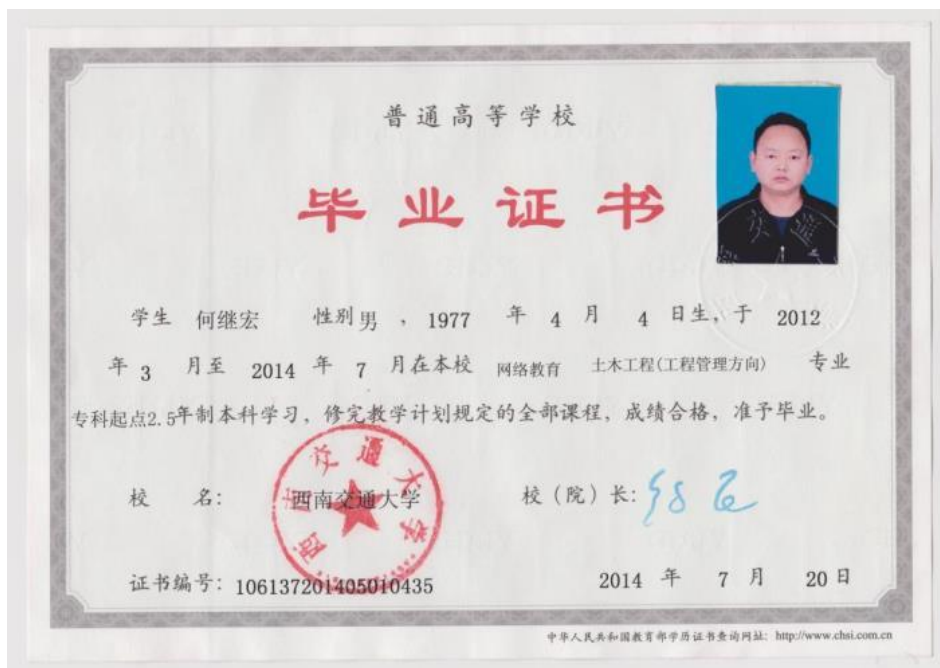 普通高等学校
毕业证书
学生 何继宏 性别 男 , 1977 年 4 月 4 日生, 于 2012
年 3 月至 2014 年 7 月在本校 网络教育 土木工程(工程管理方向) 专业
专科起点2.5年制本科学习，修完教学计划规定的全部课程，成绩合格，准予毕业。
校 名： 西南交通大学 校（院）长：
西南交通大学
证书编号：106137201405010435 2014 年 7 月 20 日
中华人民共和国教育部学历证书查询网址：http://www.chsi.com.cn